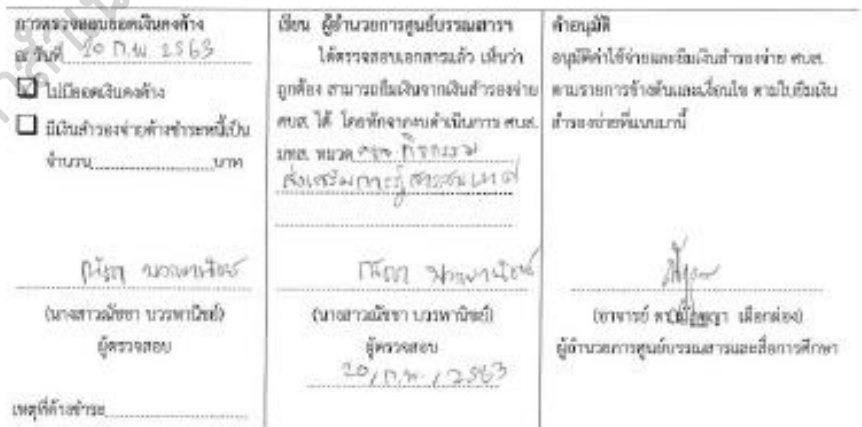 การตรวจสอบยอดเงินคงค้าง
ณ วันที่ 20 ก.พ. 2563
ไม่มียอดเงินคงค้าง
มีเงินสำรองจ่ายค้างชำระหนี้เป็น
จำนวน บาท
ณัชชา บวรพานิชย์
(นางสาวณัชชา บวรพานิชย์)
ผู้ตรวจสอบ
เหตุที่ค้างชำระ
เรียน ผู้อำนวยการศูนย์บรรณสารฯ
ได้ตรวจสอบเอกสารแล้ว เห็นว่า
ถูกต้อง สามารถยืมเงินจากเงินสำรองจ่าย
ศบส. ได้ โดยหักจากงบดำเนินการ ศบส.
มทส. หมวด กิจกรรม
ส่งเสริมการรู้สารสนเทศ
ณัชชา บวรพานิชย์
(นางสาวณัชชา บวรพานิชย์)
ผู้ตรวจสอบ
20 / ก.พ. / 2563
คำอนุมัติ
อนุมัติค่าใช้จ่ายและยืมเงินสำรองจ่าย ศบส.
ตามรายการข้างต้นและเงื่อนไข ตามใบยืมเงิน
สำรองจ่ายที่แนบมานี้
(อาจารย์ เผือกผ่อง)
ผู้อำนวยการศูนย์บรรณสารและสื่อการศึกษา